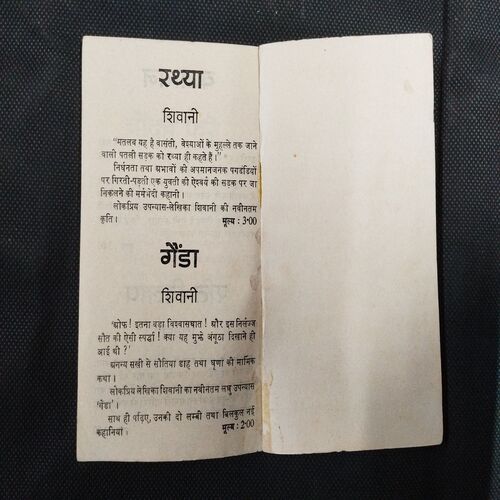 रथ्या
शिवानी
“मतलब यह है वासंती, वेश्याओं के मुहल्ले तक जाने
वाली पतली सड़क को रथ्या ही कहते हैं।”
निर्धनता तथा अभावों की अपमानजनक पगडंडियों
पर गिरती-पड़ती एक युवती की ऐश्वर्य की सड़क पर जा
निकलने की मर्मभेदी कहानी।
लोकप्रिय उपन्यास-लेखिका शिवानी की नवीनतम
कृति। मूल्य : 3·00
गैंडा
शिवानी
‘ओफ! इतना बड़ा विश्वासघात! और इस निर्लज्ज
सौत की ऐसी स्पर्द्धा! क्या यह मुझे अंगूठा दिखाने ही
आई थी?’
अनन्य सखी से सौतिया डाह तथा घृणा की मार्मिक
कथा।
लोकप्रिय लेखिका शिवानी का नवीनतम लघु उपन्यास
‘गैंडा’।
साथ ही पढ़िए, उनकी दो लम्बी तथा बिलकुल नई
कहानियां। मूल्य : 2·00